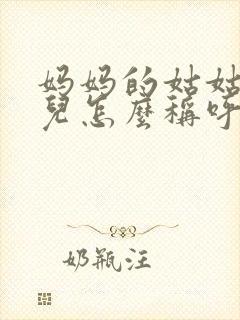 妈妈的姑姑
兒怎麼稱呼
奶瓶汪